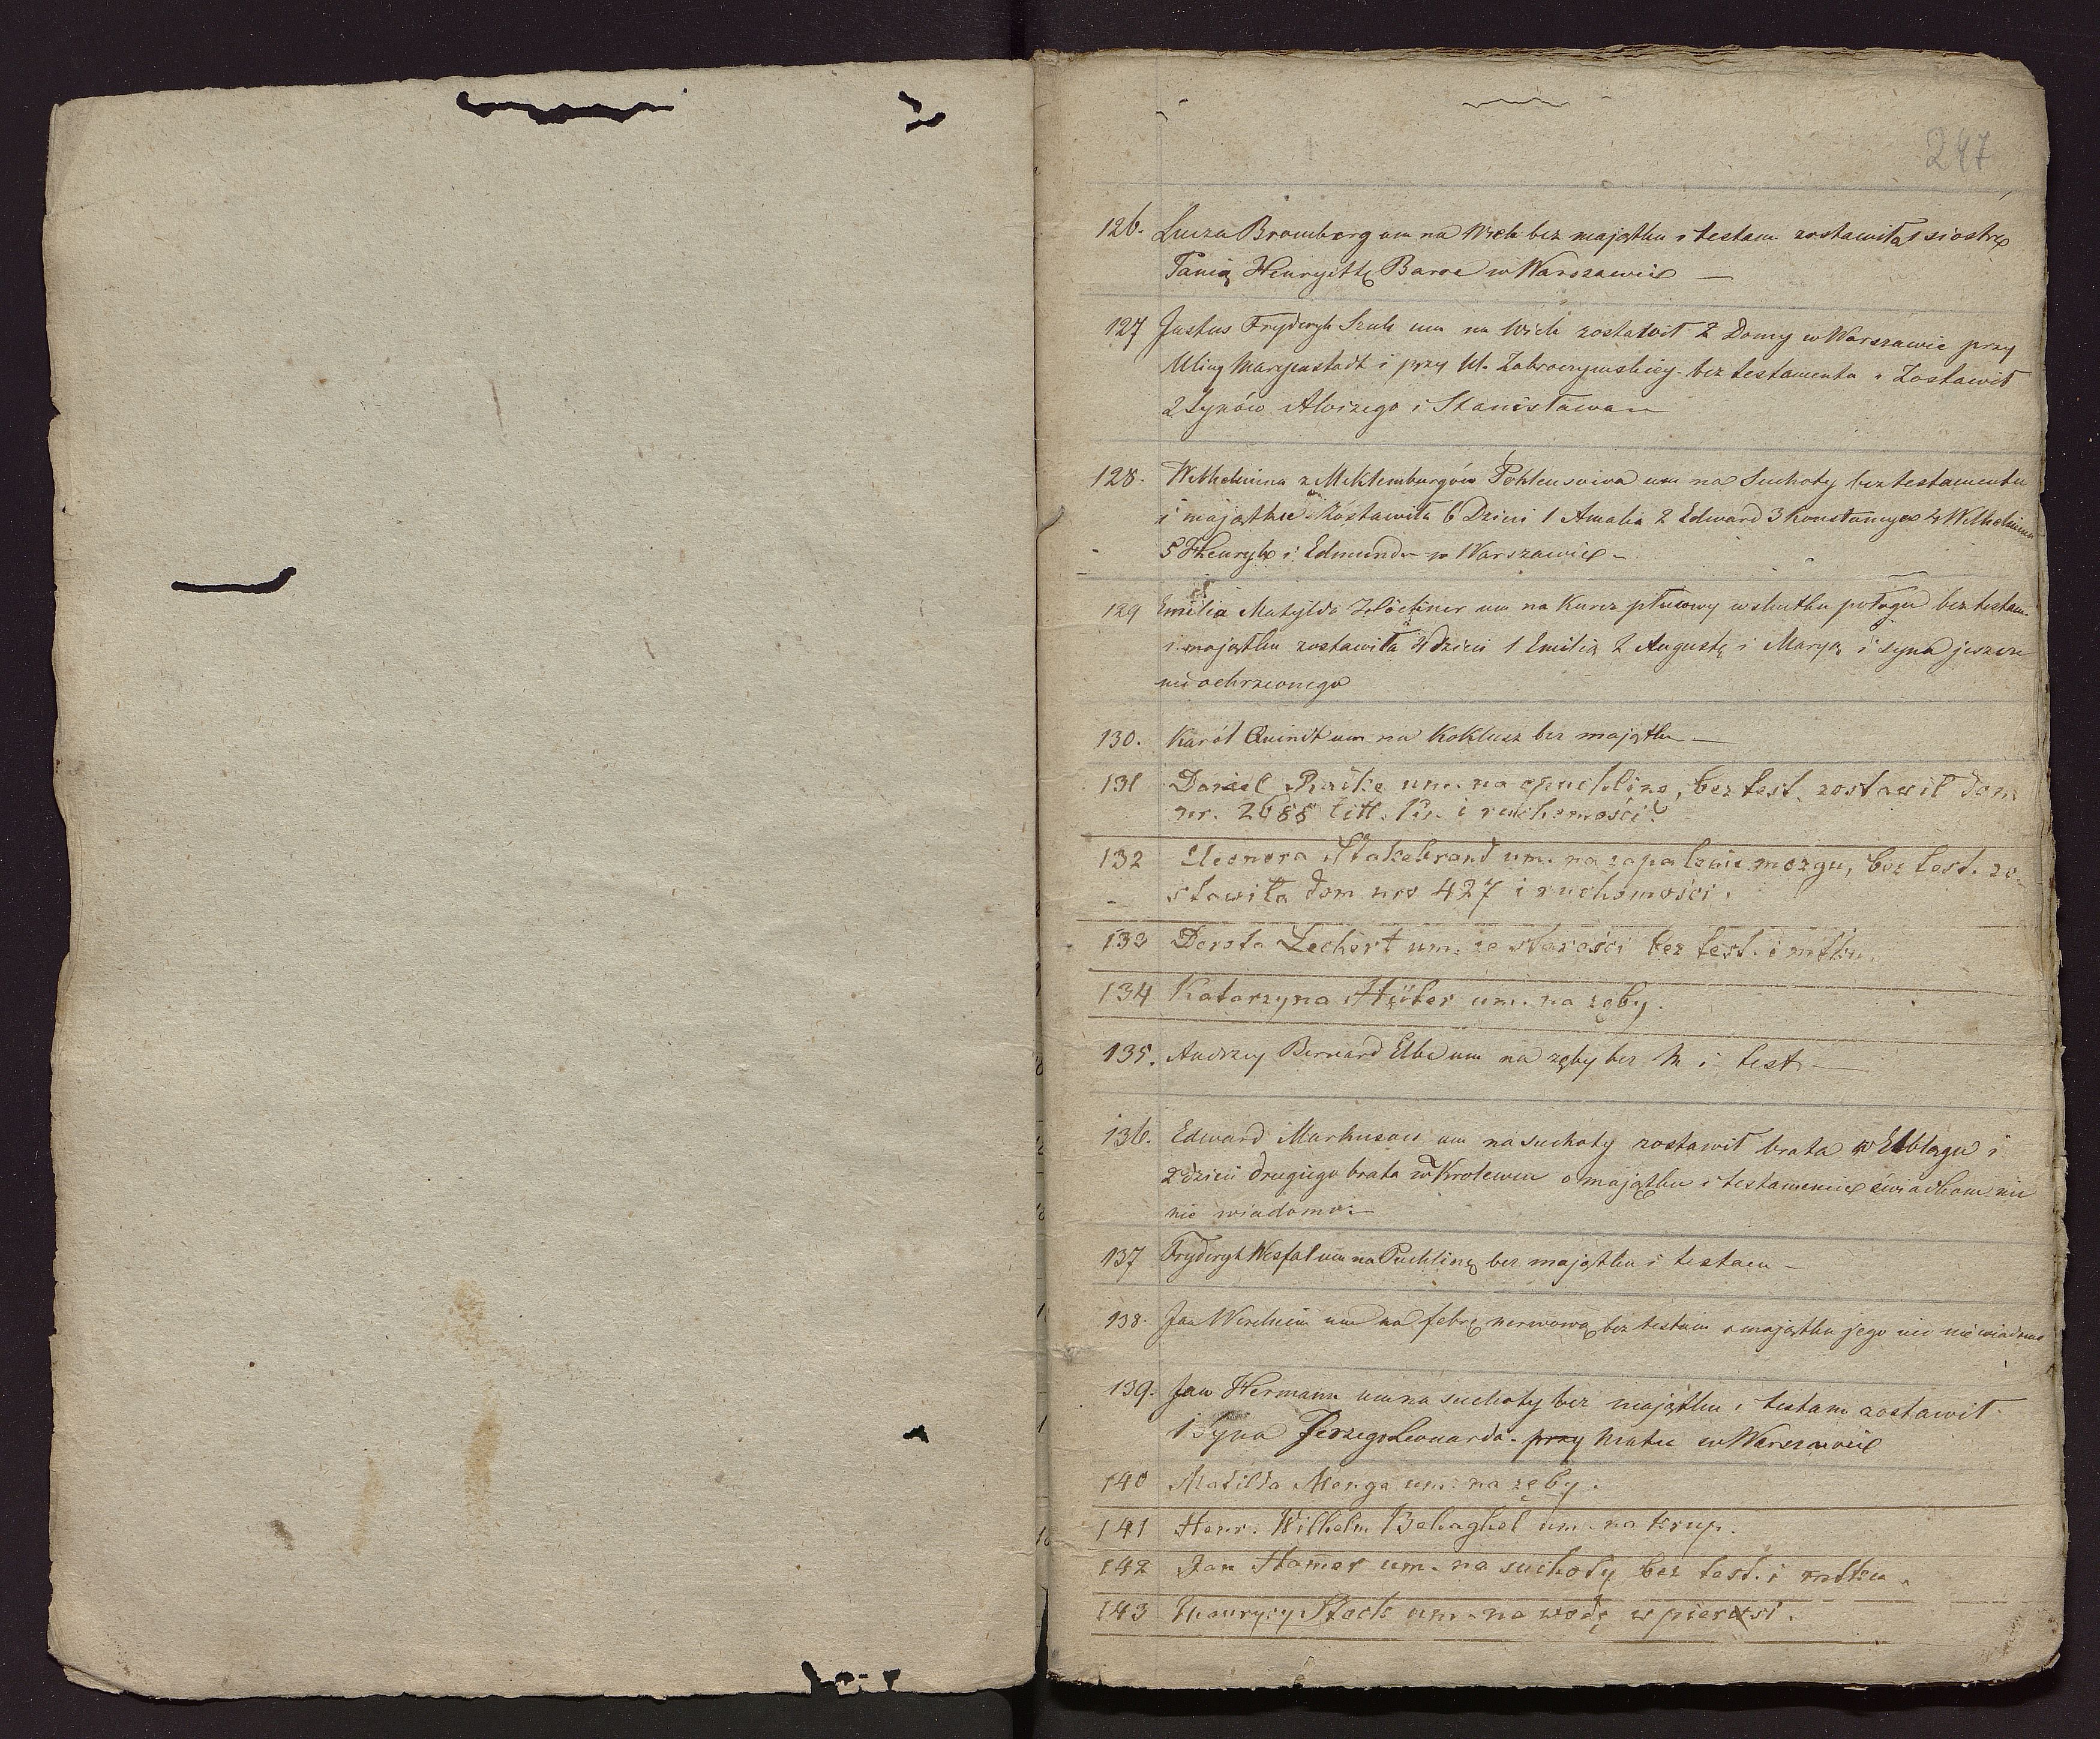 247
126. Luiza Bromberg um na Wiek bez majątku i testam zostawiła 1 siostrę
Panią Henryettę w Warszawie —
127 Justus Fryderyk Szulc um na Wiek zostawił 2 Domy w Warszawie przy
Ulicy Maryenstadt i przy Ul. Zakroczymskiey bez testamentu. Zostawił
2 Synów Aloizego i Stanisława
128. Wilhelmina z Meklemburgów um na Suchoty bez testamentu
i majątku Zostawiła 6 Dzieci 1 Amalia 2 Edward 3 Konstancya 4 Wilhelmina
5 Henryk i Edmund w Warszawie
129 Emilia Matylda um na Kurcz płucowy w skutku połogu bez testam.
i majątku zostawiła 4 dzieci 1 Emilią 2 Augustę i Maryą i syna jeszcze
nieochrzconego
130. Karól Quindt um na Koklusz bez majątku —
131 Daniel um. na opuchlinę, bez test. zostawił dom
nr. 2688 i ruchomości.
132 Eleonora Stakebrand um. na zapalenie mozgu, bez test. zo-
stawiła dom nro 427 i ruchomości.
133 Dorota Lechert um. ze starości bez test. i mtku.
134 Katarzyna um. na zęby.
135. Andrzey Bernard Elbe um na zęby bez M i test —
136. Edward um na suchoty zostawił brata w Elblągu i
2 dzieci drugiego brata w Krolewcu o majątku i testamencie świadkom nic
nie wiadomo. —
137 Fryderyk Wesfal um na Puchlinę bez majątku i testam —
138. Jan um na febrę nerwową bez testam o majątku jego nic nie wiadomo
139. Jan Hermann um na suchoty bez majątku i testam zostawił
1 Syna Jerzego Leonarda. przy Matce w Warszawie
140 Matilda Menge um. na zęby.
141 Henr. Wilhelm Behaghel um. na krup.
142 Jan Hamer um. na suchoty bez test. i mtku.
143 um. na wodę w piersi.